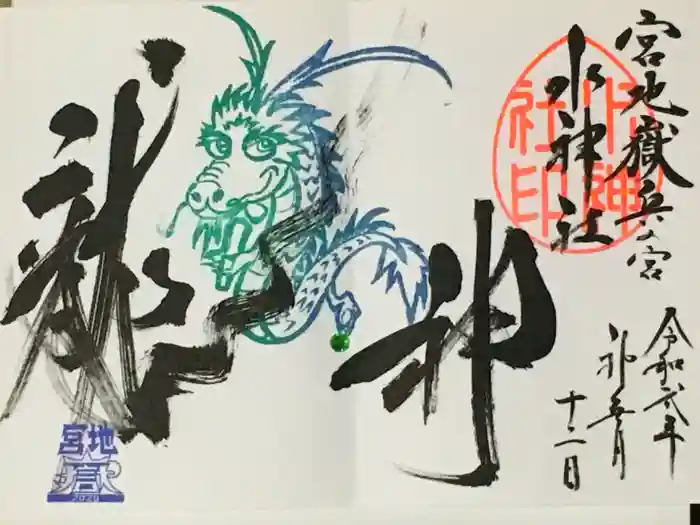 宮地嶽奥之宮
水神社
水神社印
令和弐年
神無月
十二日
龍神
宮地
嶽
2020